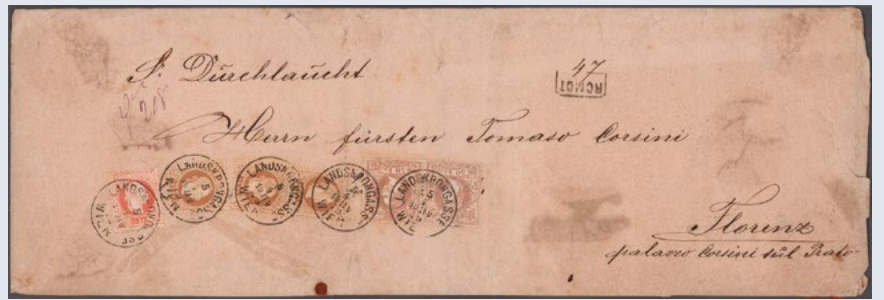 47
S. Durchlaucht
RCMDT
218
Herrn fürsten Tomaso Corsini
LANDSKRONGASSE WIEN
LANDSKRONGASSE WIEN
LANDSKRONGASSE WIEN
LANDSKRONGASSE WIEN
LANDSKRONGASSE WIE
Florenz
palazzo Corsini sul Prato